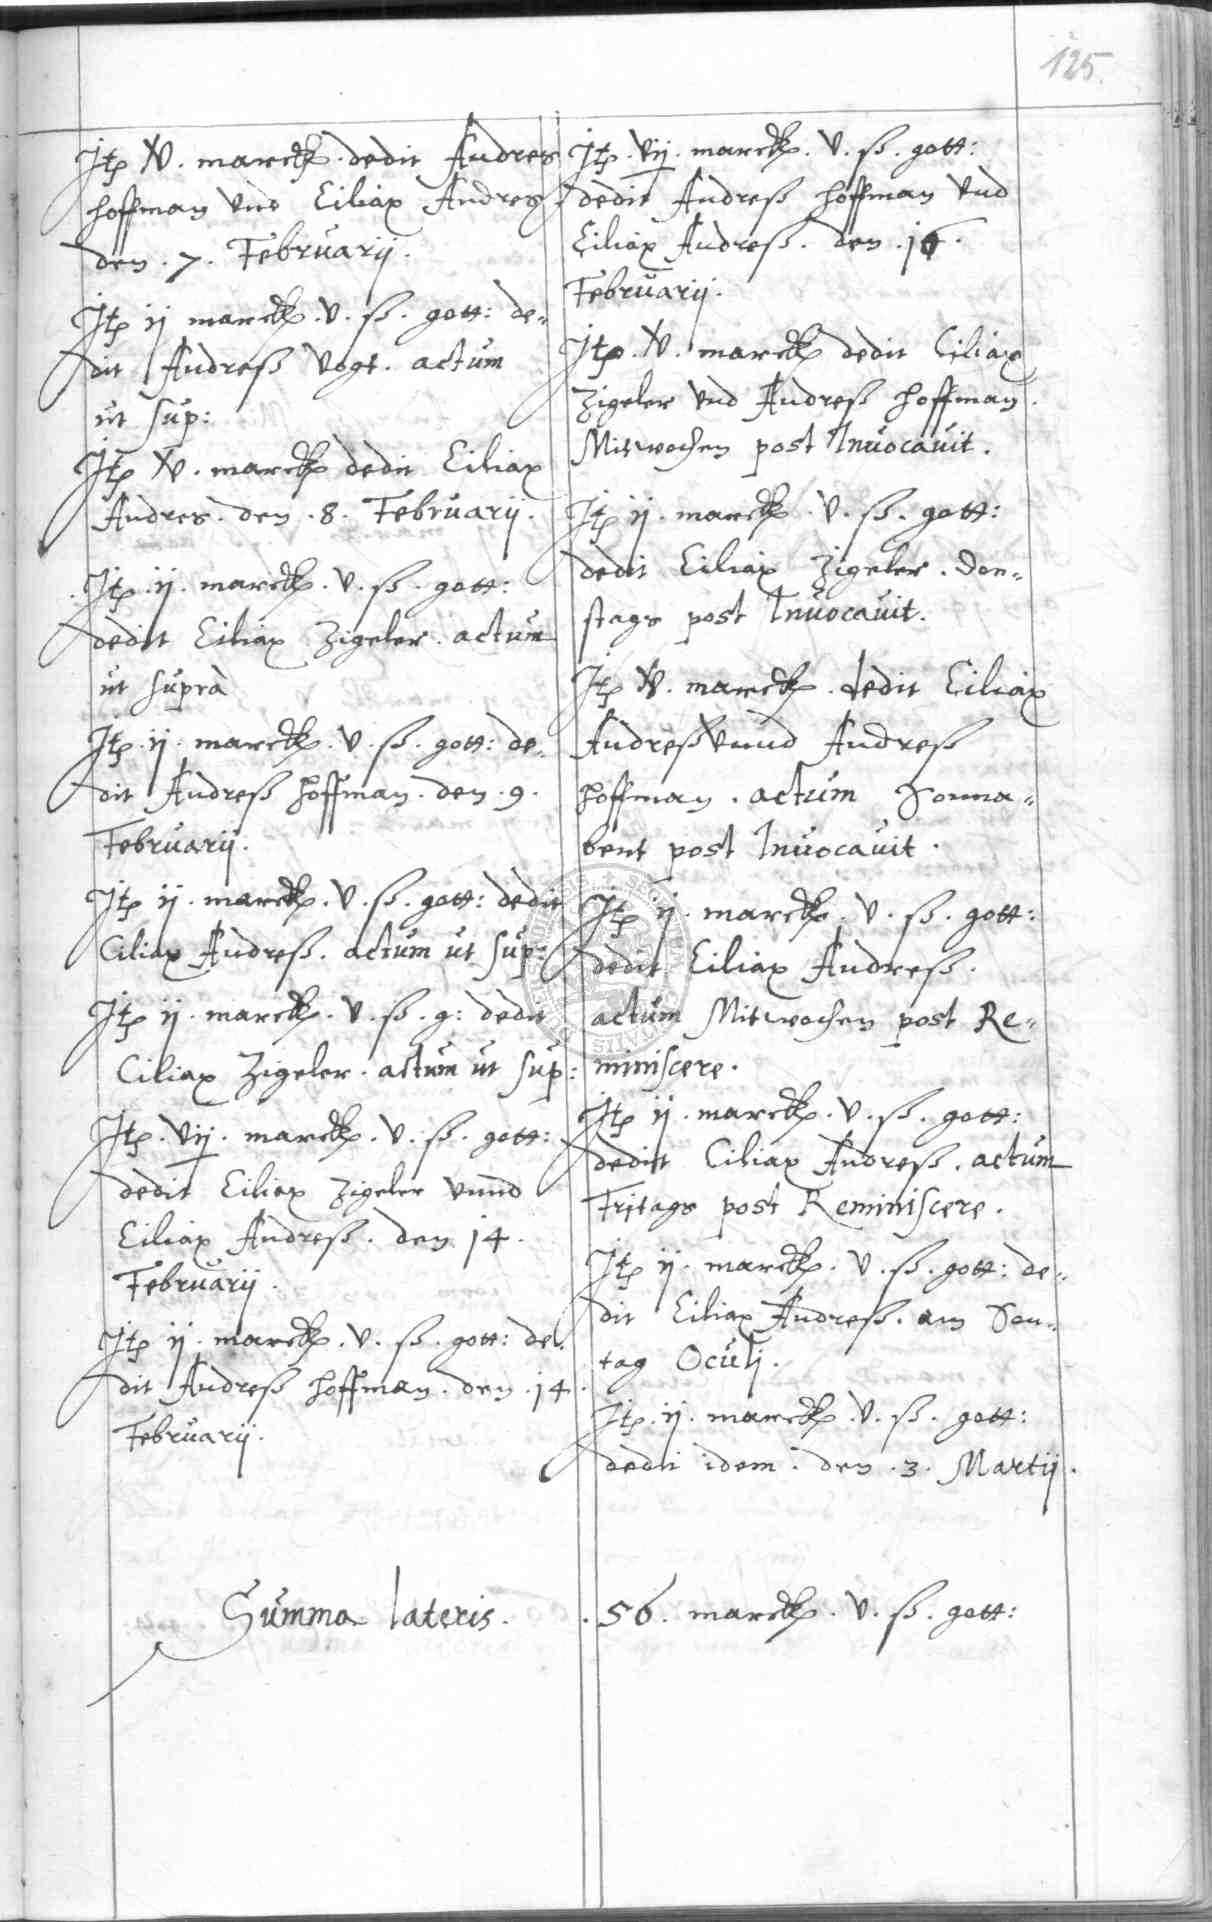 Itē v. marck. dedit Andres
hoffman vnd Ciliax Andres
den . 7 . Februarij.
Itē ij marck . v . ß . gott: de=
dit Andreß Vogt. actum
ut sup:
Itē v. marck dedit Ciliax
Andres . den . 8 . Februarij.
Itē . ij . marck . v . ß . gott:
dedit Ciliax Zigeler . actum
ut suprà
Itē . ij . marck . v . ß . gott: de=
dit Andreß hoffman . den . 9 .
Februarij.
Itē ij . marck . v . ß . gott: dedit
Ciliax Andreß . actum ut sup:
Itē ij . marck . v . ß . g: dedit
Ciliax Zigeler . actum ut sup:
Itē . vij . marck . v . ß . gott:
dedit Ciliax Zigeler vnnd
Ciliax Andreß . den 14 .
Februarij.
Itē ij . marck . v . ß . gott: de=
dit Andreß hoffman . den . 14 .
Februarij.
125.
Itē . vij . marck . v . ß . gott:
dedit Andreß hoffman vnd
Ciliax Andreß . den . 16 .
Februarij.
Itē . v . marck dedit Ciliax
Zigeler vnd Andreß hoffman .
Mitwochen post Inuocauit .
Itē ij . marck . v . ß . gott:
dedit Ciliax Zigeler . Don=
stags post Inuocauit.
Itē v . marck . dedit Ciliax
Andreß vnnd Andreß
hoffman . actum Sonna=
bent post Inuocauit .
Itē ij . marck . v . ß . gott:
dedit Ciliax Andreß .
actum Mitwochen post Re=
miniscere .
Itē ij . marck . v . ß . gott:
dedit Ciliax Andreß . actum
Fritags post Reminiscere .
Itē ij . marck . v . ß . gott: de=
dit Ciliax Andreß . am Son=
tag Oculi .
Itē . ij . marck . v . ß . gott:
dedit idem . den . 3 . Martij .
Summa lateris . . 56 . marck . v . ß . gott: